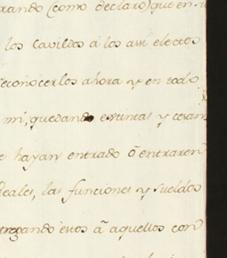 rando (como declaro) que en
los cavildos á los asi electos
reconocerlos ahora y en todo
mi, quedando extintas y cesan
e hayan entrado ó entraren
Reales, las funciones y sueldos
tregando estos á aquellos con